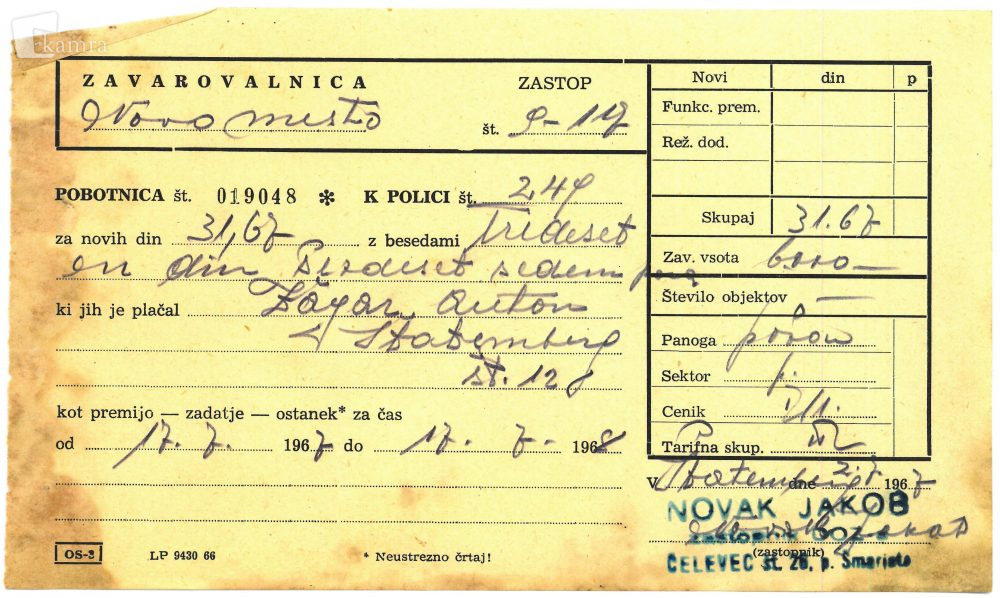 kamra
ZAVAROVALNICA
Novo mesto
ZASTOP
št. 9-117
POBOTNICA št. 019048 * K POLICI št. 249
za novih din 31,67 z besedami Trideset
en din šezdeset sedem para
ki jih je plačal Žagar Anton
Statemberg
št. 12
kot premijo — zadatje — ostanek* za čas
od 17. 7. 1967 do 17. 7. 1968
OS-3
LP 9430 66
* Neustrezno črtaj!
Novi din p
Funkc. prem.
Rež. dod.
Skupaj 31.67
Zav. vsota
Število objektov —
Panoga požar
Sektor
Cenik
Tarifna skup.
V Statemberg dne 1967
NOVAK JAKOB
Zastopnik
(zastopnik)
ČELEVEC št. 26, p. Šmarjeta